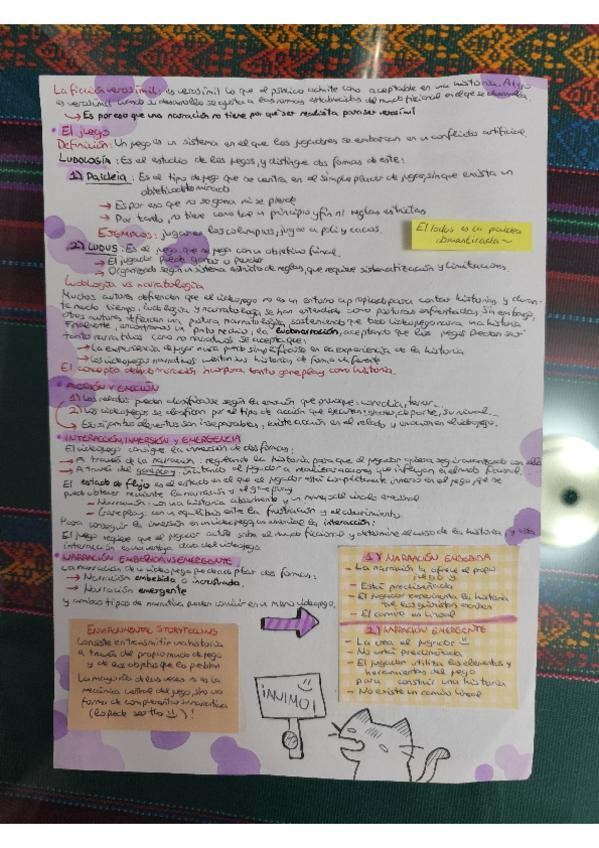 La ficción verosímil: es verosímil lo que el público admite como aceptable en una historia. Algo
es verosímil cuando su desarrollo se ajusta a las normas establecidas del mundo ficcional en el que se desarrolla
↳ Es por eso que una narración no tiene por qué ser realista para ser verosímil
• El juego
Definición: Un juego es un sistema en el que los jugadores se embarcan en un conflicto artificial.
LUDOLOGÍA: Es el estudio de los juegos, y distingue dos formas de este:
1) PAIDEIA: Es el tipo de juego que se centra en el simple placer de jugar, sin que exista un
objetivo
→ Es por eso que no se gana ni se pierde
→ Por tanto, no tiene como tal un principio y fin ni reglas estrictas
EJEMPLOS: jugar en los columpios, jugar a polis y cacos.
El ludus es la paideia
domesticada~
2) LUDUS: Es el juego que se juega con un objetivo final.
→ El jugador puede ganar o perder
→ Organizado según un sistema estricto de reglas, que requiere sistematización y limitaciones.
Ludología vs narratología
Muchos autores defienden que el videojuego no es un entorno apropiado para contar historias, y duran-
te mucho tiempo, ludología y narratología, se han entendido como posturas enfrentadas. Sin embargo,
otros autores defienden una postura narratológica, sosteniendo que todo videojuego narra una historia
Finalmente, encontramos un punto medio, la ludonarración, aceptando que los juegos pueden ser
tanto narrativos como no narrativos. Se acepta que:
→ La experiencia de jugar nunca puede simplificarse en la experiencia de la historia
→ Los videojuegos narrativos construyen historias, de forma diferente
El concepto de ludonarración incorpora tanto gameplay como historia.
• ACCIÓN Y EMOCIÓN
1) Los relatos pueden clasificarse según la emoción que provoque: comedia, terror...
2) Los videojuegos se clasifican por el tipo de acción que ejecuten: shooter, deporte, survival...
→ Esos juntos elementos son inseparables, existe acción en el relato y emoción en el videojuego.
• INTERACCIÓN, INMERSIÓN Y EMERGENCIA
El videojuego consigue la inmersión de dos formas:
→ A través de la narración: regulando la historia para que el jugador quiera seguir avanzando con ella
→ A través del gameplay: invitando al jugador a realizar acciones que influyen en el mundo ficcional.
El estado de flujo es el estado en el que el jugador está completamente inmerso en el juego, que se
puede obtener mediante la narración y el gameplay
— Narración: con una historia absorbente y un mayor vínculo emocional
— Gameplay: con un equilibrio entre la frustración y el aburrimiento.
Para conseguir la inmersión en un videojuego es esencial la interacción:
El juego requiere que el jugador actúe sobre el mundo ficcional y determine el curso de la historia, y esta
interacción es una ventaja clave del videojuego.
• NARRACIÓN EMBEBIDA VS EMERGENTE
La narración de un videojuego puede adoptar dos formas:
→ Narración embebida o incrustada.
→ Narración emergente
Y ambos tipos de narrativa pueden convivir en un mismo videojuego.
1) NARRACIÓN EMBEBIDA
- La narración la ofrece el propio
juego y
- Está prediseñada
- El jugador experimenta la historia
- El camino es lineal
2) NARRACIÓN EMERGENTE
- La crea el jugador
- No está prediseñada
- El jugador utiliza los elementos y
herramientas del juego
para construir una historia
- No existe un camino lineal
ENVIRONMENTAL STORYTELLING
Consiste en transmitir una historia
a través del propio mundo de juego
y de los objetos que lo pueblan
La mayoría de las veces no es la
mecánica central del juego, sino una
forma de complementar la narrativa
(lo puede ser tho)!
¡ANIMO!